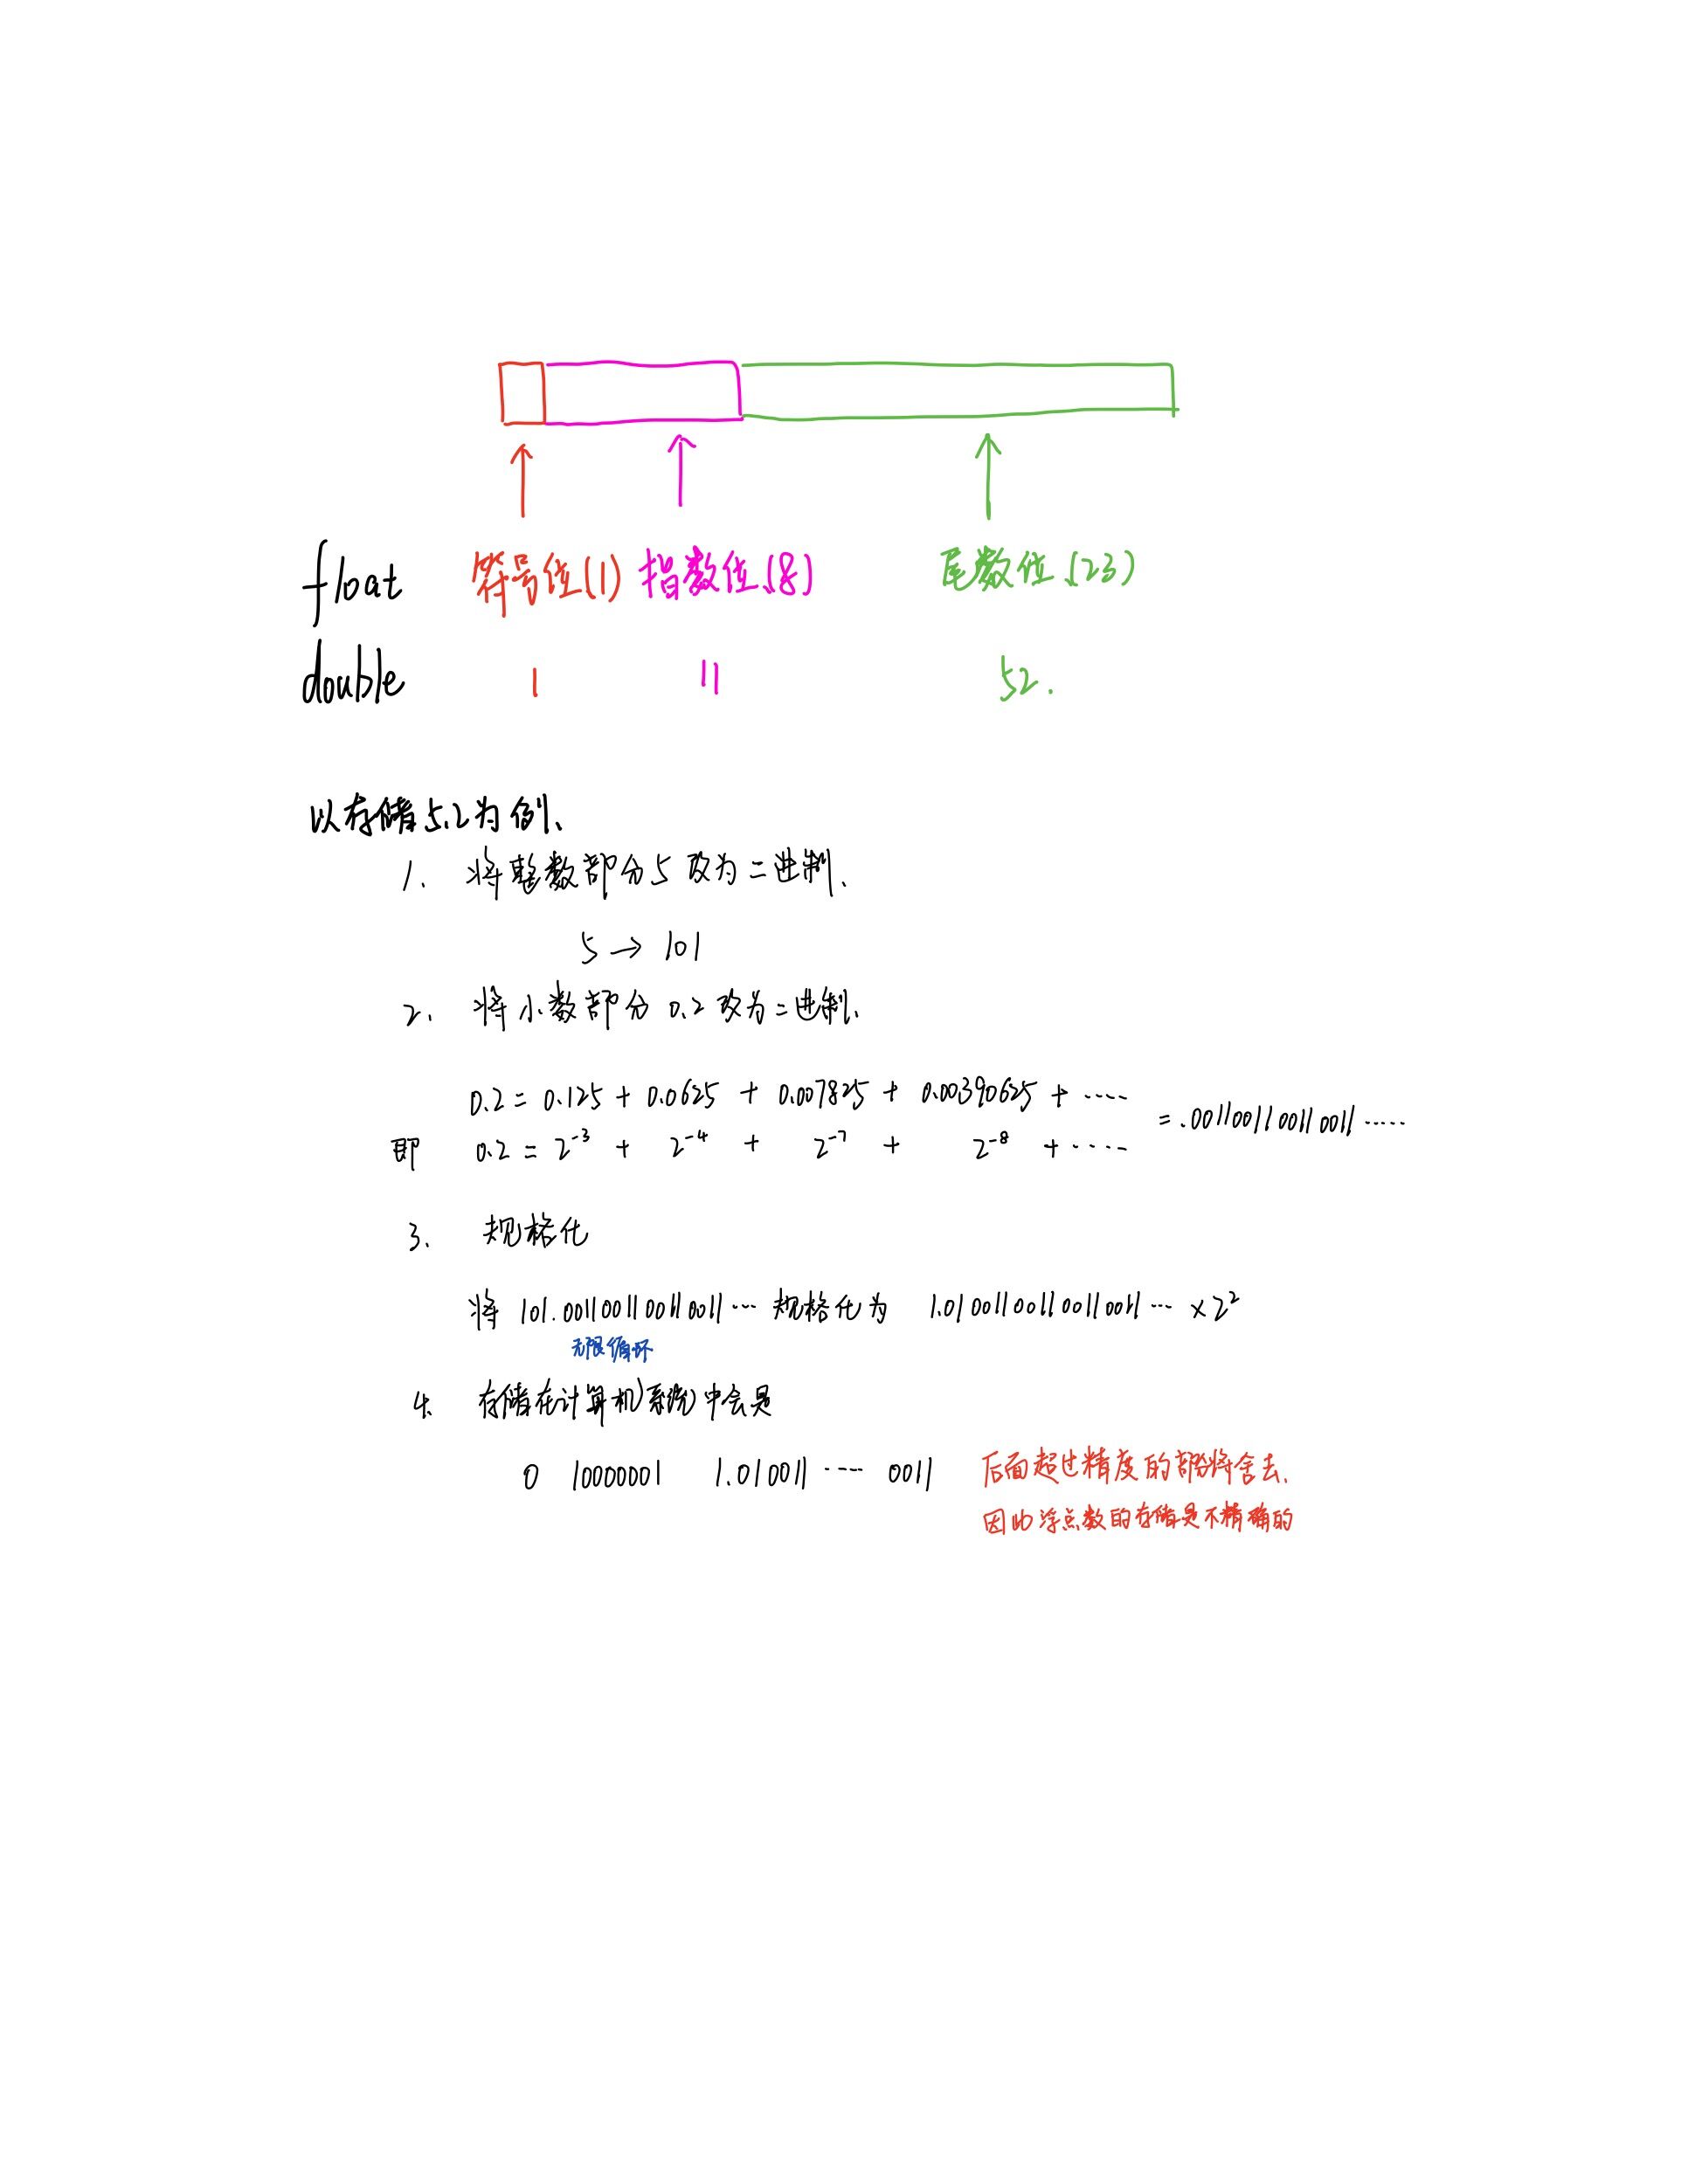 float 符号位(1) 指数位(8) 尾数位(23)
double 1 11 52.
以存储5.2为例、
1. 将整数部分5改为二进制.
5 → 101
2. 将小数部分0.2改为二进制.
0.2 = 0.125 + 0.0625 + 0.007825 + 0.00390625 + ····
= .0011001100110011 ·····
即 0.2 = 2⁻³ + 2⁻⁴ + 2⁻⁷ + 2⁻⁸ + ····
3. 规格化
将 101.0011001100110011··· 规格化为 1.010011001100110011··· ×2²
无限循环
4. 存储在计算机系统中会是
0 10000001 1.010011 ···· 0011 后面超过精度的部分将舍去.
因此浮点数的存储是不精确的